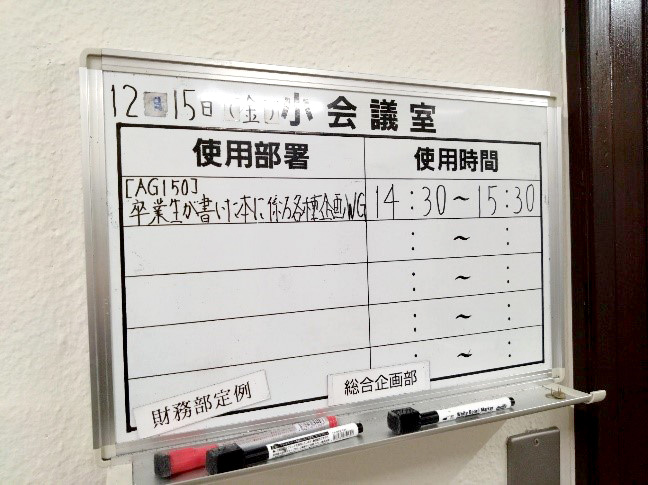 12月15日(金)小会議室
使用部署 使用時間
[AG150]
卒業生が書いた本に係る各種企画WG 14:30～15:30
: ～ :
: ～ :
: ～ :
: ～ :
財務部定例
総合企画部
White Board Marker